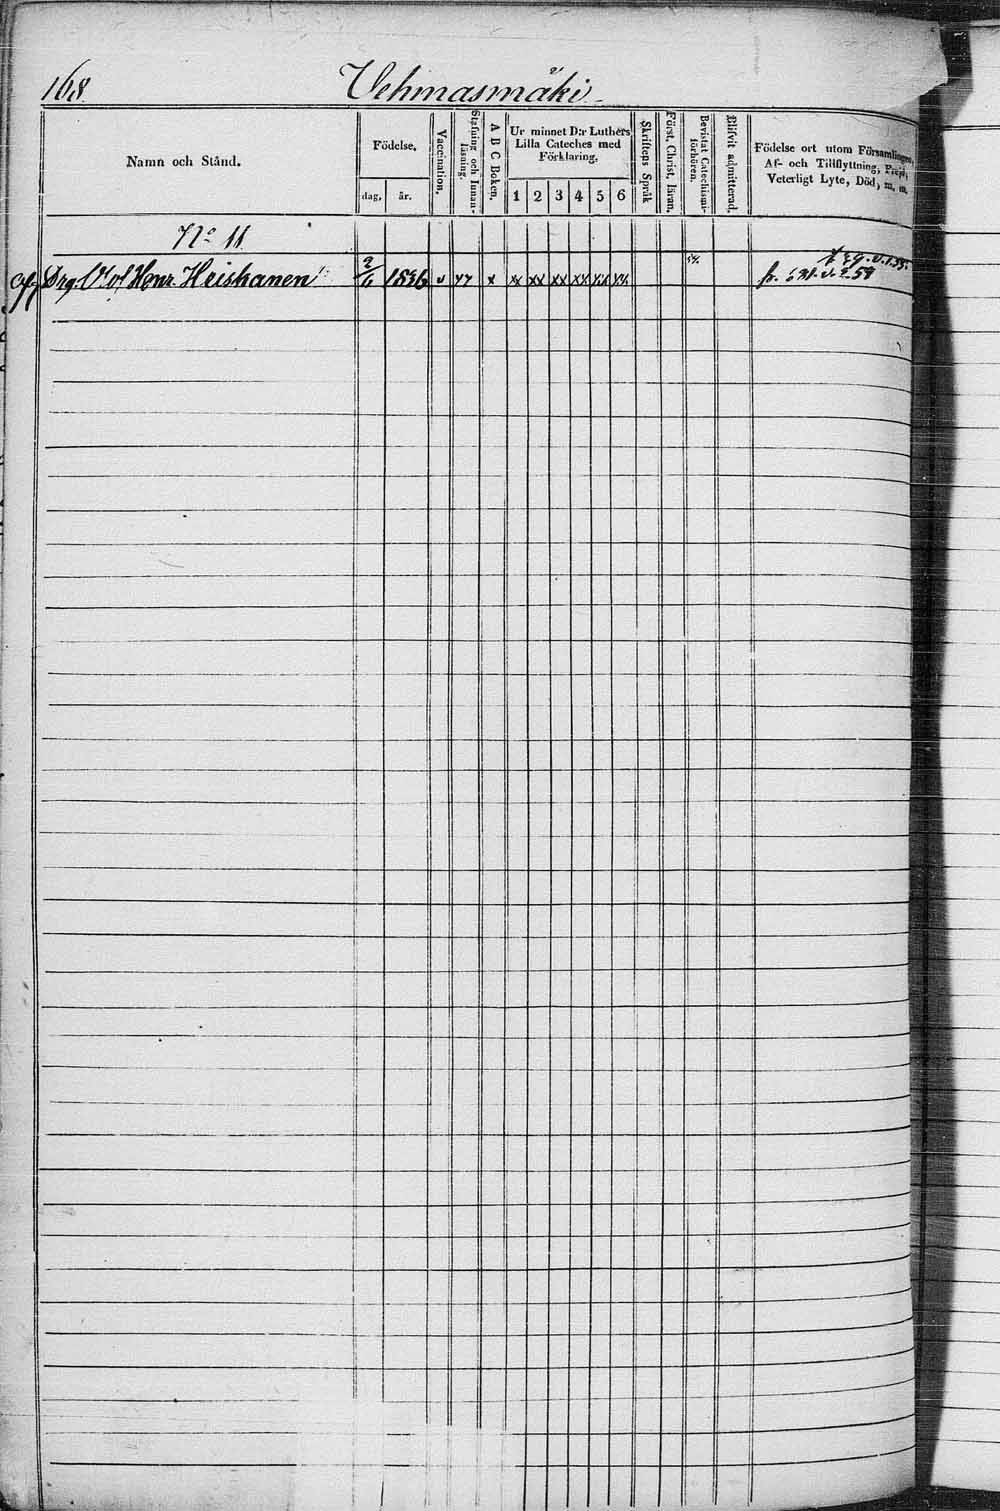 168
Vehmasmäki
Namn och Stånd.
Födelse.
dag. år.
Vaccination.
Stafning och Innan-
läsning.
A B C Boken.
Ur minnet D:r Luthers
Lilla Cateches med
Förklaring.
1 2 3 4 5 6
Skriftens Språk
Först. Christ. läran.
Bevistat Catechismi-
förhören.
Blifvit admitterad.
Födelse ort utom Församlingen,
Af- och Tillflyttning, Frejd,
Veterligt Lyte, Död, m. m.
No 11
Henr. Heiskanen 1836 v x xx xx xx xx xx xx